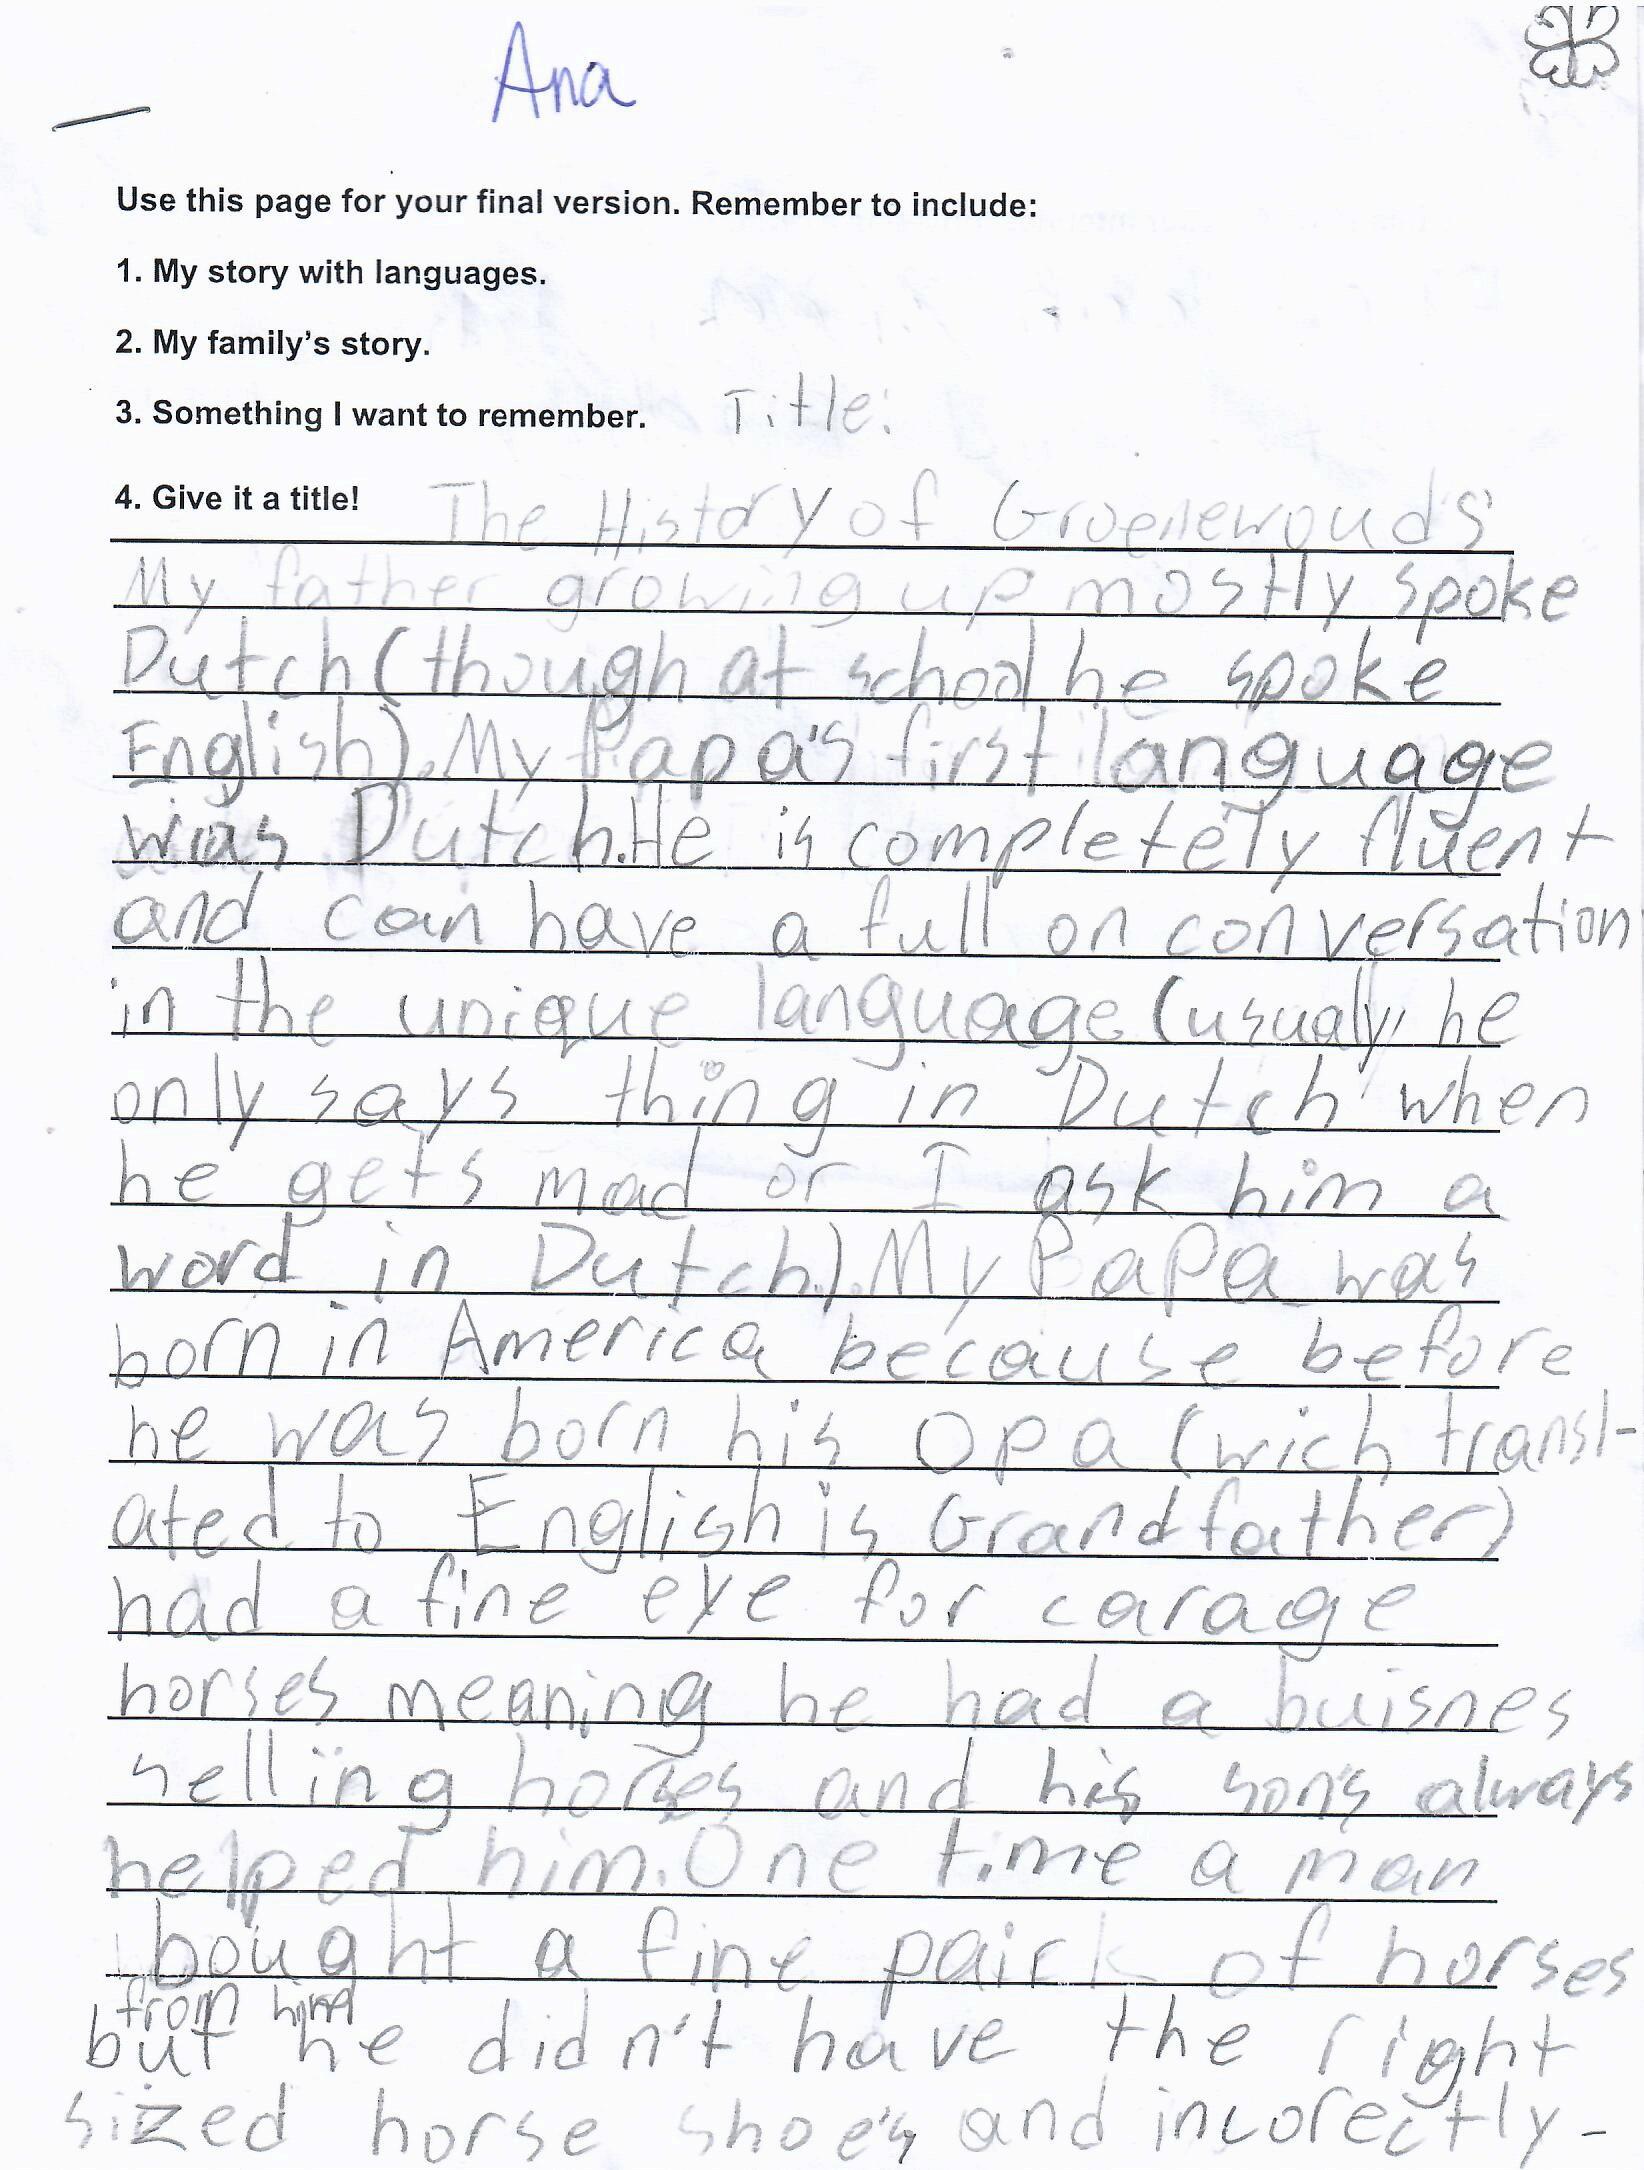 Ana
Use this page for your final version. Remember to include:
1. My story with languages.
2. My family's story.
3. Something I want to remember. Title:
4. Give it a title! The History of Groenewouds
My father growing up mostly spoke
Dutch (though at school he spoke
English). My Papa's first language
was Dutch. He is completely fluent
and can have a full on conversation
in the unique language (usualy, he
only says thing in Dutch when
he gets mad or I ask him a
word in Dutch.). My Papa was
born in America because before
he was born his Opa (wich transl-
ated to English is Grandfather)
had a fine eye for carage
horses meaning he had a buisnes
selling horses and his son's always
helped him. One time a man
bought a fine pair of horses
from him
but he didn't have the right
sized horse shoe's and incorectly-